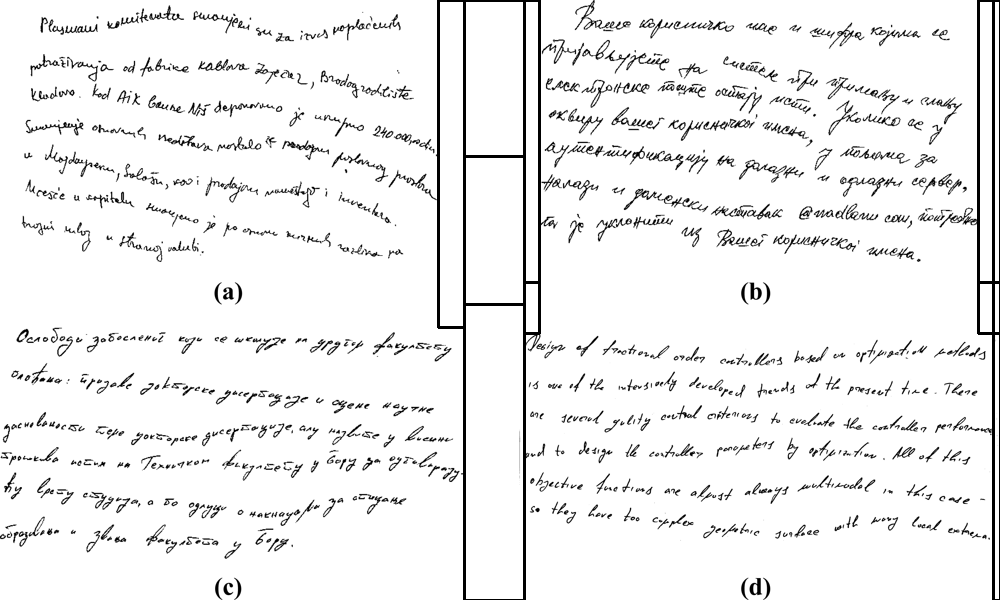 Plasmani komitentu smanjeni su za iznos naplaćenih
potraživanja od fabrike kablova Zaječar, Brodogradilište
Kladovo. Kod Aik banke Niš deponovano je ukupno 240 000
Smanjenje osnovnih sredstava nastalo je prodajom poslovnog prostora
u Majdanpeku, Salašu, kao i prodajom nameštaja i inventara.
učešće u kapitalu smanjeno je po osnovu
u stranoj valuti.
(a)
Ваше корисничко име и шифра којима се
пријављујете на систем при пријему и слању
електронске поште остају исти. Уколико се у
оквиру вашег корисничког имена, у пољима за
аутентификацију на долазни и одлазни сервер,
налази и доменски наставак @madbanu.com, потребно
је уклонити из Вашег корисничког имена.
(b)
Ослободи запосленог који се школује на другом факултету
трошкова: пријаве докторске дисертације и оцене научне
заснованости теме докторске дисертације, али казните у висини
трошкова истих на Техничком факултету у Бору да одговарају
врсту студија, а по одлуци о накнадама за стицање
образовања и звања факултета у Бору.
(c)
Design of fractional order controllers based on optimization methods
is one of the intensively developed trends of the present time. There
are several quality control criterions to evaluate the controller performance
and to design the controller parameters by optimization. All of this
objective functions are almost always multimodal in this case -
so they have too complex geometric surface with many local extrema.
(d)